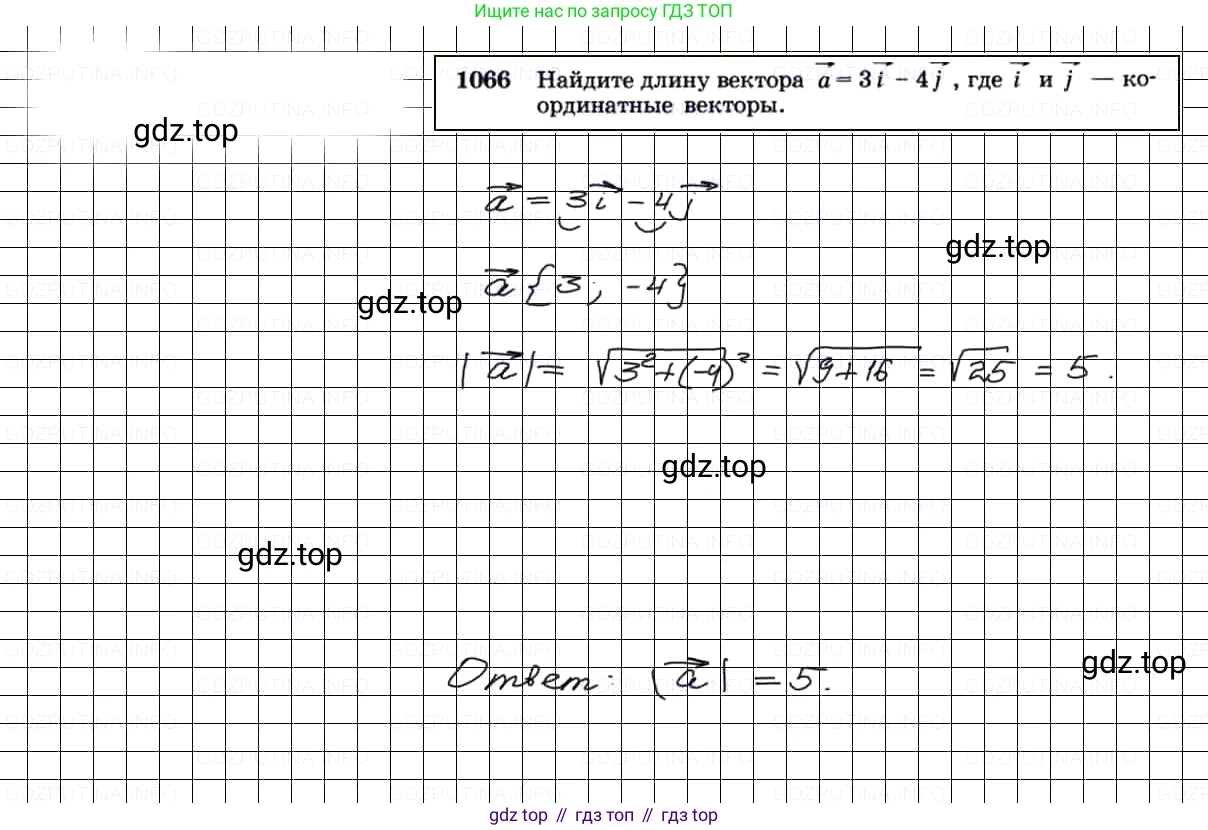 Ищите нас по запросу ГДЗ ТОП
1066 Найдите длину вектора a⃗ = 3i⃗ – 4j⃗ , где i⃗ и j⃗ — ко-
ординатные векторы.
gdz.top
a⃗ = 3i⃗ – 4j⃗
gdz.top
a⃗ {3; -4}
gdz.top
|a⃗| = √3² + (-4)² = √9 + 16 = √25 = 5.
gdz.top
gdz.top
gdz.top
Ответ: |a⃗| = 5.
gdz top // гдз топ // гдз top
GDZPUTINA.INFO